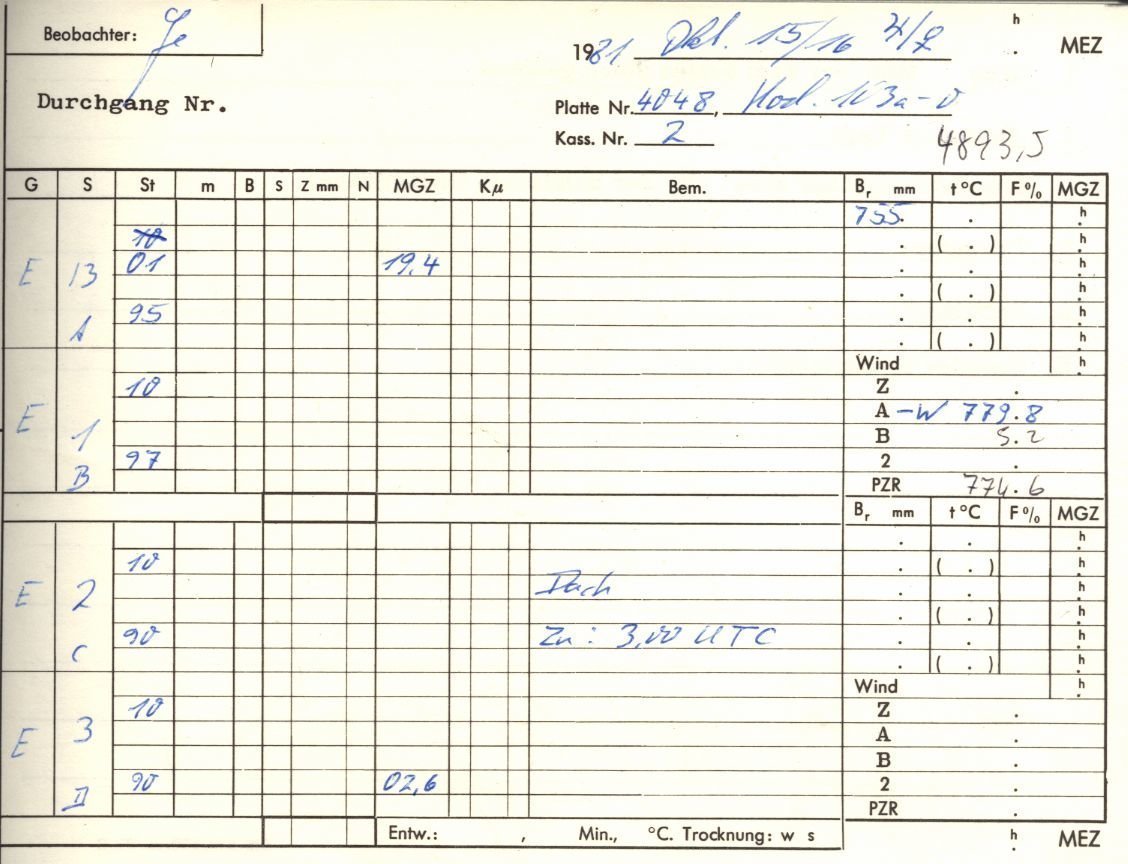 Beobachter: Ge
1981 Okt. 15/16 h . MEZ
Durchgang Nr.
Platte Nr. 4048, Kod. 103a-0
Kass. Nr. 2
4893,5
G S St m B S Z mm N MGZ Kµ Bem. Br mm t °C F % MGZ
755. . h
10 . ( . ) h
E 13 01 19,4 . . h
. ( . ) h
95 . . h
A . ( . ) h
Wind h
10 Z .
E A -W 779.8
1 B 5.2
97 2 .
B PZR 774.6
Br mm t °C F % MGZ
. . h
10 . ( . ) h
E 2 Dach . . h
. ( . ) h
90 Zu: 3,00 UTC . . h
C . ( . ) h
Wind h
10 Z .
E 3 A .
B .
90 02,6 2 .
D PZR .
Entw.: , Min., °C. Trocknung: w s h . MEZ